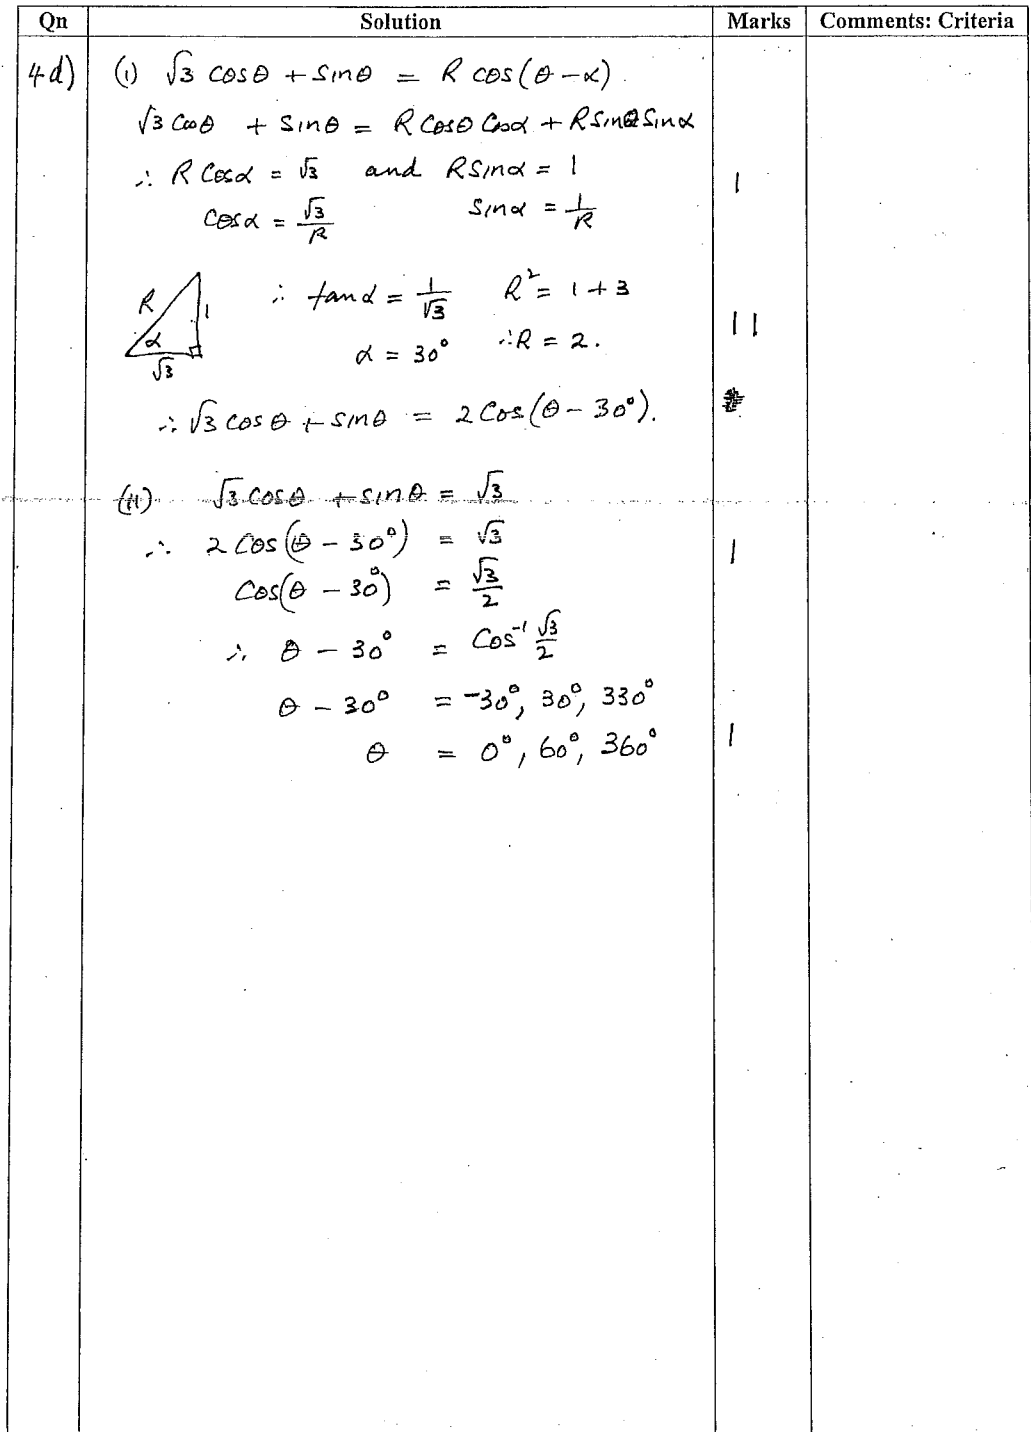 Qn Solution Marks Comments: Criteria
4d) (i) √3 cosθ + sinθ = R cos(θ - α).
√3 cosθ + sinθ = R cosθ cosα + R sinθ sinα
∴ R cosα = √3 and R sinα = 1 1
cosα = √3/R sinα = 1/R
R 1 α √3
∴ tanα = 1/√3 R² = 1 + 3
α = 30° ∴R = 2. 11
∴ √3 cosθ + sinθ = 2 cos(θ - 30°).
(ii) √3 cosθ + sinθ = √3
∴ 2 cos(θ - 30°) = √3 1
cos(θ - 30°) = √3/2
∴ θ - 30° = cos⁻¹ √3/2
θ - 30° = -30°, 30°, 330°
θ = 0°, 60°, 360° 1